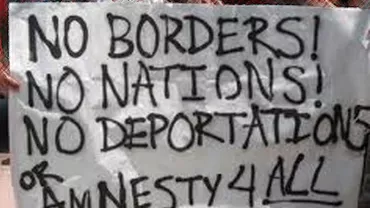 NO BORDERS!
NO NATIONS!
NO DEPORTATIONS
OR
AMNESTY 4 ALL